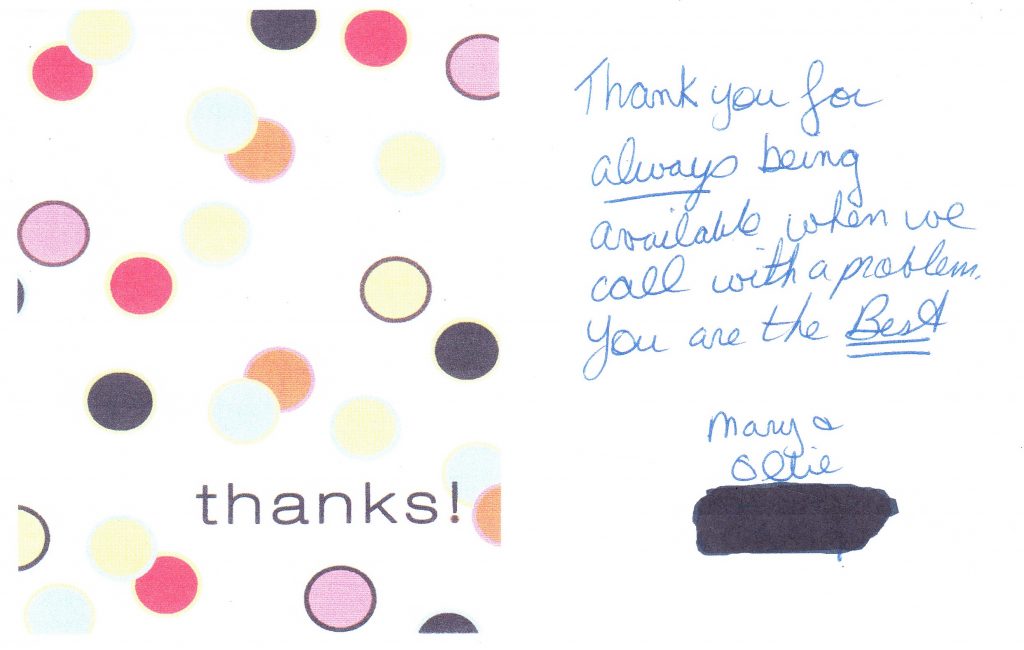 thanks!
Thank you for
always being
available when we
call with a problem.
You are the Best
Mary &
Ollie